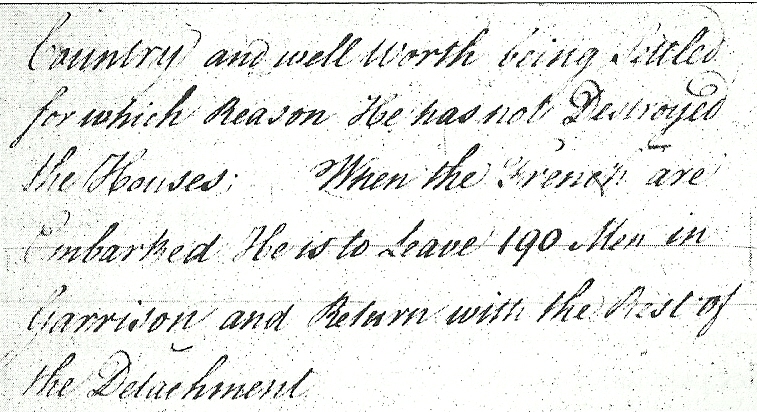 Country and well Worth being Settled
for which Reason He has not Destroyed
the Houses; When the French are
Embarked He is to Leave 190 Men in
Garrison and Return with the Rest of
the Detachment